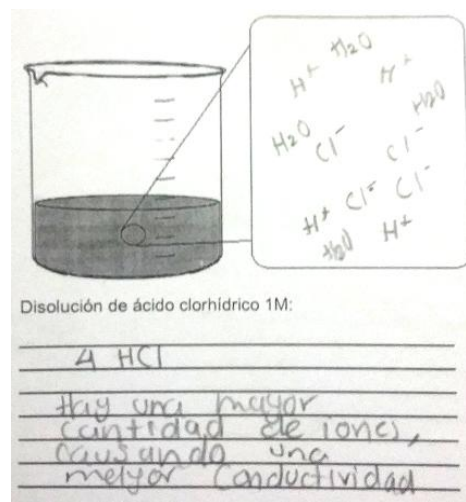 H2O
H+
H+
H2O
H2O
Cl-
Cl-
Cl-
Cl-
H+
H+
H2O
Disolución de ácido clorhídrico 1M:
4 HCl
Hay una mayor
cantidad de iones,
causando una
mejor conductividad